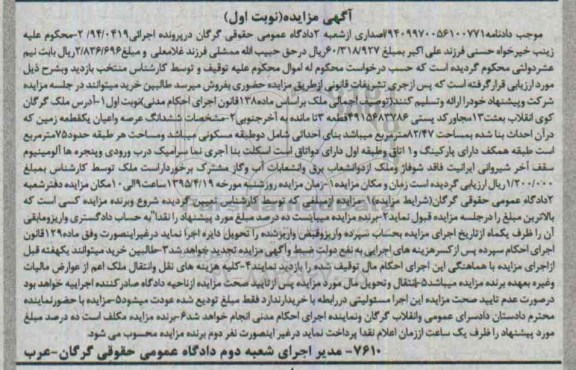 آگهی مزایده(نوبت اول)
موجب دادنامه۹۴۰۹۹۷۰۰۵۶۱۰۰۷۷۱اصداری ازشعبه ۲دادگاه عمومی حقوقی گرگان درپرونده اجرائی۹۴/۰۴۱۹/ ۲-محکوم علیه
زینب خیرخواه حسنی فرزند علی اکبر بمبلغ ۶۰/۳۱۸/۹۲۷ریال درحق حبیب الله ممشلی فرزند غلامعلی و مبلغ۲/۸۳۶/۶۹۶ریال بابت نیم
عشردولتی محکوم گردیده است که حسب درخواست محکوم له اموال محکوم علیه توقیف و توسط کارشناس منتخب بازدید وبشرح ذیل
مورد ارزیابی قرارگرفته است که پس ازجری تشریفات قانونی ازطریق مزایده حضوری بفروش میرسد طالبین خرید میتوانند در جلسه مزایده
شرکت وپیشنهاد خودرا ارائه وتسلیم کنند(توصیف اجمالی ملک براساس ماده۱۳۸قانون اجرای احکام مدنی)نوبت اول۱-آدرس ملک گرگان
کوی انقلاب بعثت۱۳مجاور کد پستی ۴۹۱۵۶۸۳۷۸۶قطعه ۳تا مانده به آخرجنوبی۲-مشخصات ششدانگ عرصه واعیان یکقطعه زمین که
درآن احداث بنا شده بمساحت ۸۲/۴۷مترمربع میباشد بنای احداثی شامل دوطبقه مسکونی میباشد ومساحت هر طبقه حدود۷۵مترمربع
است طبقه همکف دارای پارکینگ و۱ اتاق وطبقه اول دارای دواتاق است اسکلت بنا آجری نما سرامیک درب ورودی وپنجره ها آلومینیوم
سقف آخر شیروانی ایرانیت فاقد شوفاژ وملک ازدوانشعاب برق وانشعابات آب وگاز مشترک برخورداراست ملک توسط کارشناس بمبلغ
۱/۲۰۰/۰۰۰ریال ارزیابی گردیده است زمان و مکان مزایده۱-زمان مزایده روزشنبه مورخه ۱۳۹۵/۴/۱۹ساعت۹الی ۱۰مکان مزایده دفترشعبه
۲دادگاه عمومی حقوقی گرگان(شرایط مزایده)۱-مزایده ازمبلغی که توسط کارشناس تعیین گردیده شروع وبرنده مزایده کسی است که
بالاترین مبلغ را درجلسه مزایده قبول نماید۲-برنده مزایده میبایست ده درصد مبلغ مورد پیشنهاد را نقدا"به حساب دادگستری واریزومابقی
آن را ظرف یکماه ازتاریخ اجرای مزایده بحساب سپرده واریزوقبض واریزشده را تحویل دایره اجرا نماید درغیراینصورت وفق ماده۱۲۹قانون
اجرای احکام سپرده پس ازکسرهزینه های اجرایی به نفع دولت ضبط وآگهی مزایده تجدید خواهدشد۳-طالبین خرید میتوانند یکهفته قبل
ازاجرای مزایده با هماهنگی این اجرای احکام مال توقیف شده را بازدید نمایند۴-کلیه هزینه های نقل وانتقال ملک اعم از عوارض مالیات
وغیره بعهده برنده مزایده میباشد۵-انتقال وتحویل مال مورد مزایده پس ازتایید صحت مزایده ازناحیه دادگاه صادرکننده اجراییه خواهد بود
درصورت عدم تایید صحت مزایده این اجرا مسئولیتی دررابطه با خریدارندارد فقط مبلغ تودیع شده عودت میشود۵-مزایده با حضورنماینده
محترم دادستان دادسرای عمومی وانقلاب گرگان ونماینده اجرای احکام مدنی انجام خواهد شد۶-برنده مزایده مکلف است ده درصد مبلغ
مورد پیشنهاد را ظرف یک ساعت اززمان اعلام نقدا پرداخت نماید درغیر اینصورت نفر دوم برنده مزایده محسوب می شود.
۷۶۱۰- مدیر اجرای شعبه دوم دادگاه عمومی حقوقی گرگان-عرب